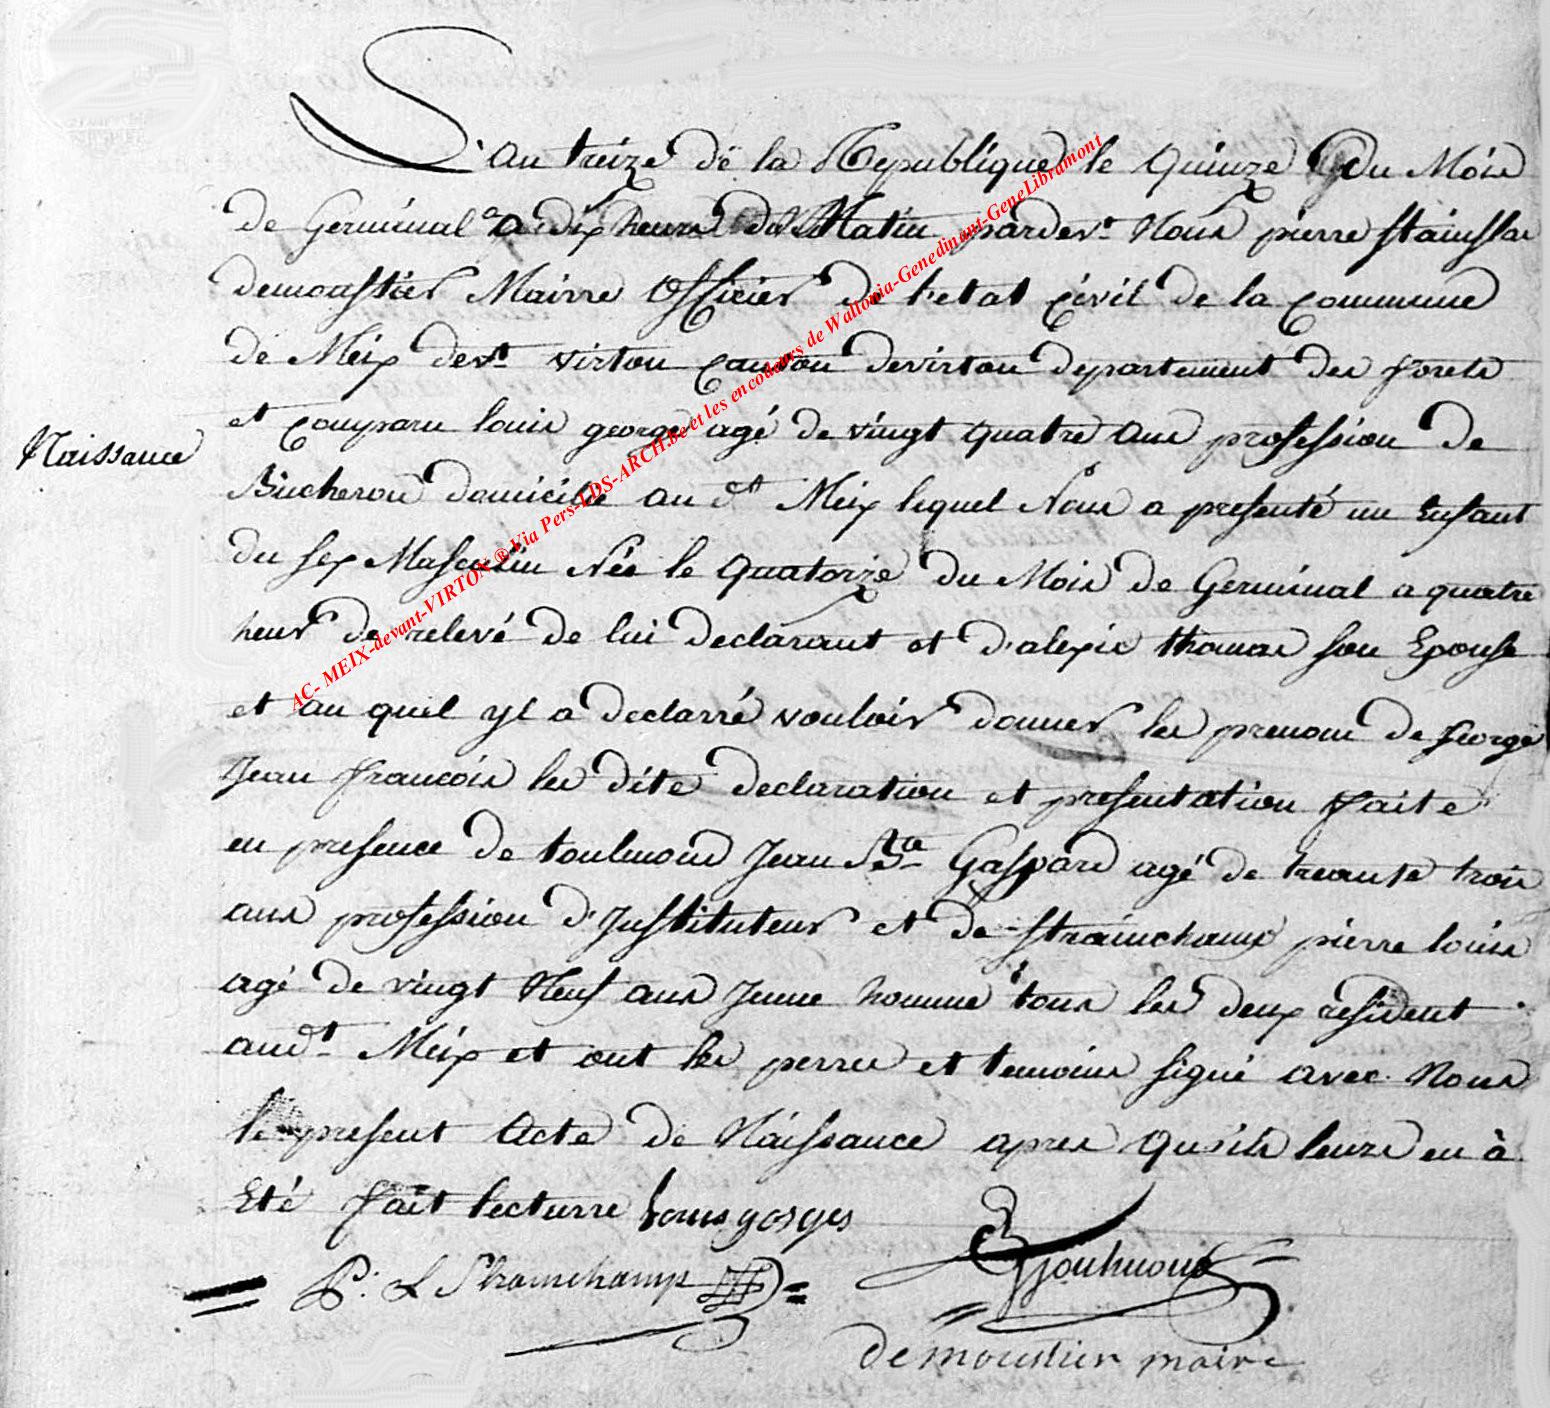 L'an treize de la Republique le Quinze du Mois
de Germinal a dix heure du Matin pardevt Nous pierre stainslas
demoastier Mairre Officier de l'etat Civil de la Commune
de Meix devt virton Canton devirton departement des forets
et Comparu louis george agé de vingt quatre ans profession de
Naissance
Bucheron domicilié au dt Meix lequel Nous a presenté un Enfant
du sex Masculin Née le Quatorze du Mois de Germinal a quatre
heur de relevé de lui declarant et d'alexis thomas son Epouse
et au quel yl a declarré vouloir donner les prenom de george
Jean francois les dite declaration et presentation faite
en presence de toulmond Jean Bte Gaspard agé de treante trois
ans profession d'Justituteur et de strainchamp pierre louis
agé de vingt Neuf ans Jeune homme tous les deux resident
audt Meix et ont les perre et temoins signé avec Nous
le present Acte de Naissance apres Qu'ils leurs en à
Eté fait lecturre Louis gorges
P: L Strainchamp
Toulmond
demoustier maire
AC- MEIX-devant-VIRTON ® Via Pers-LDS-ARCH.be et les encodeurs de Wallonia-Genedinant-GeneLibramont